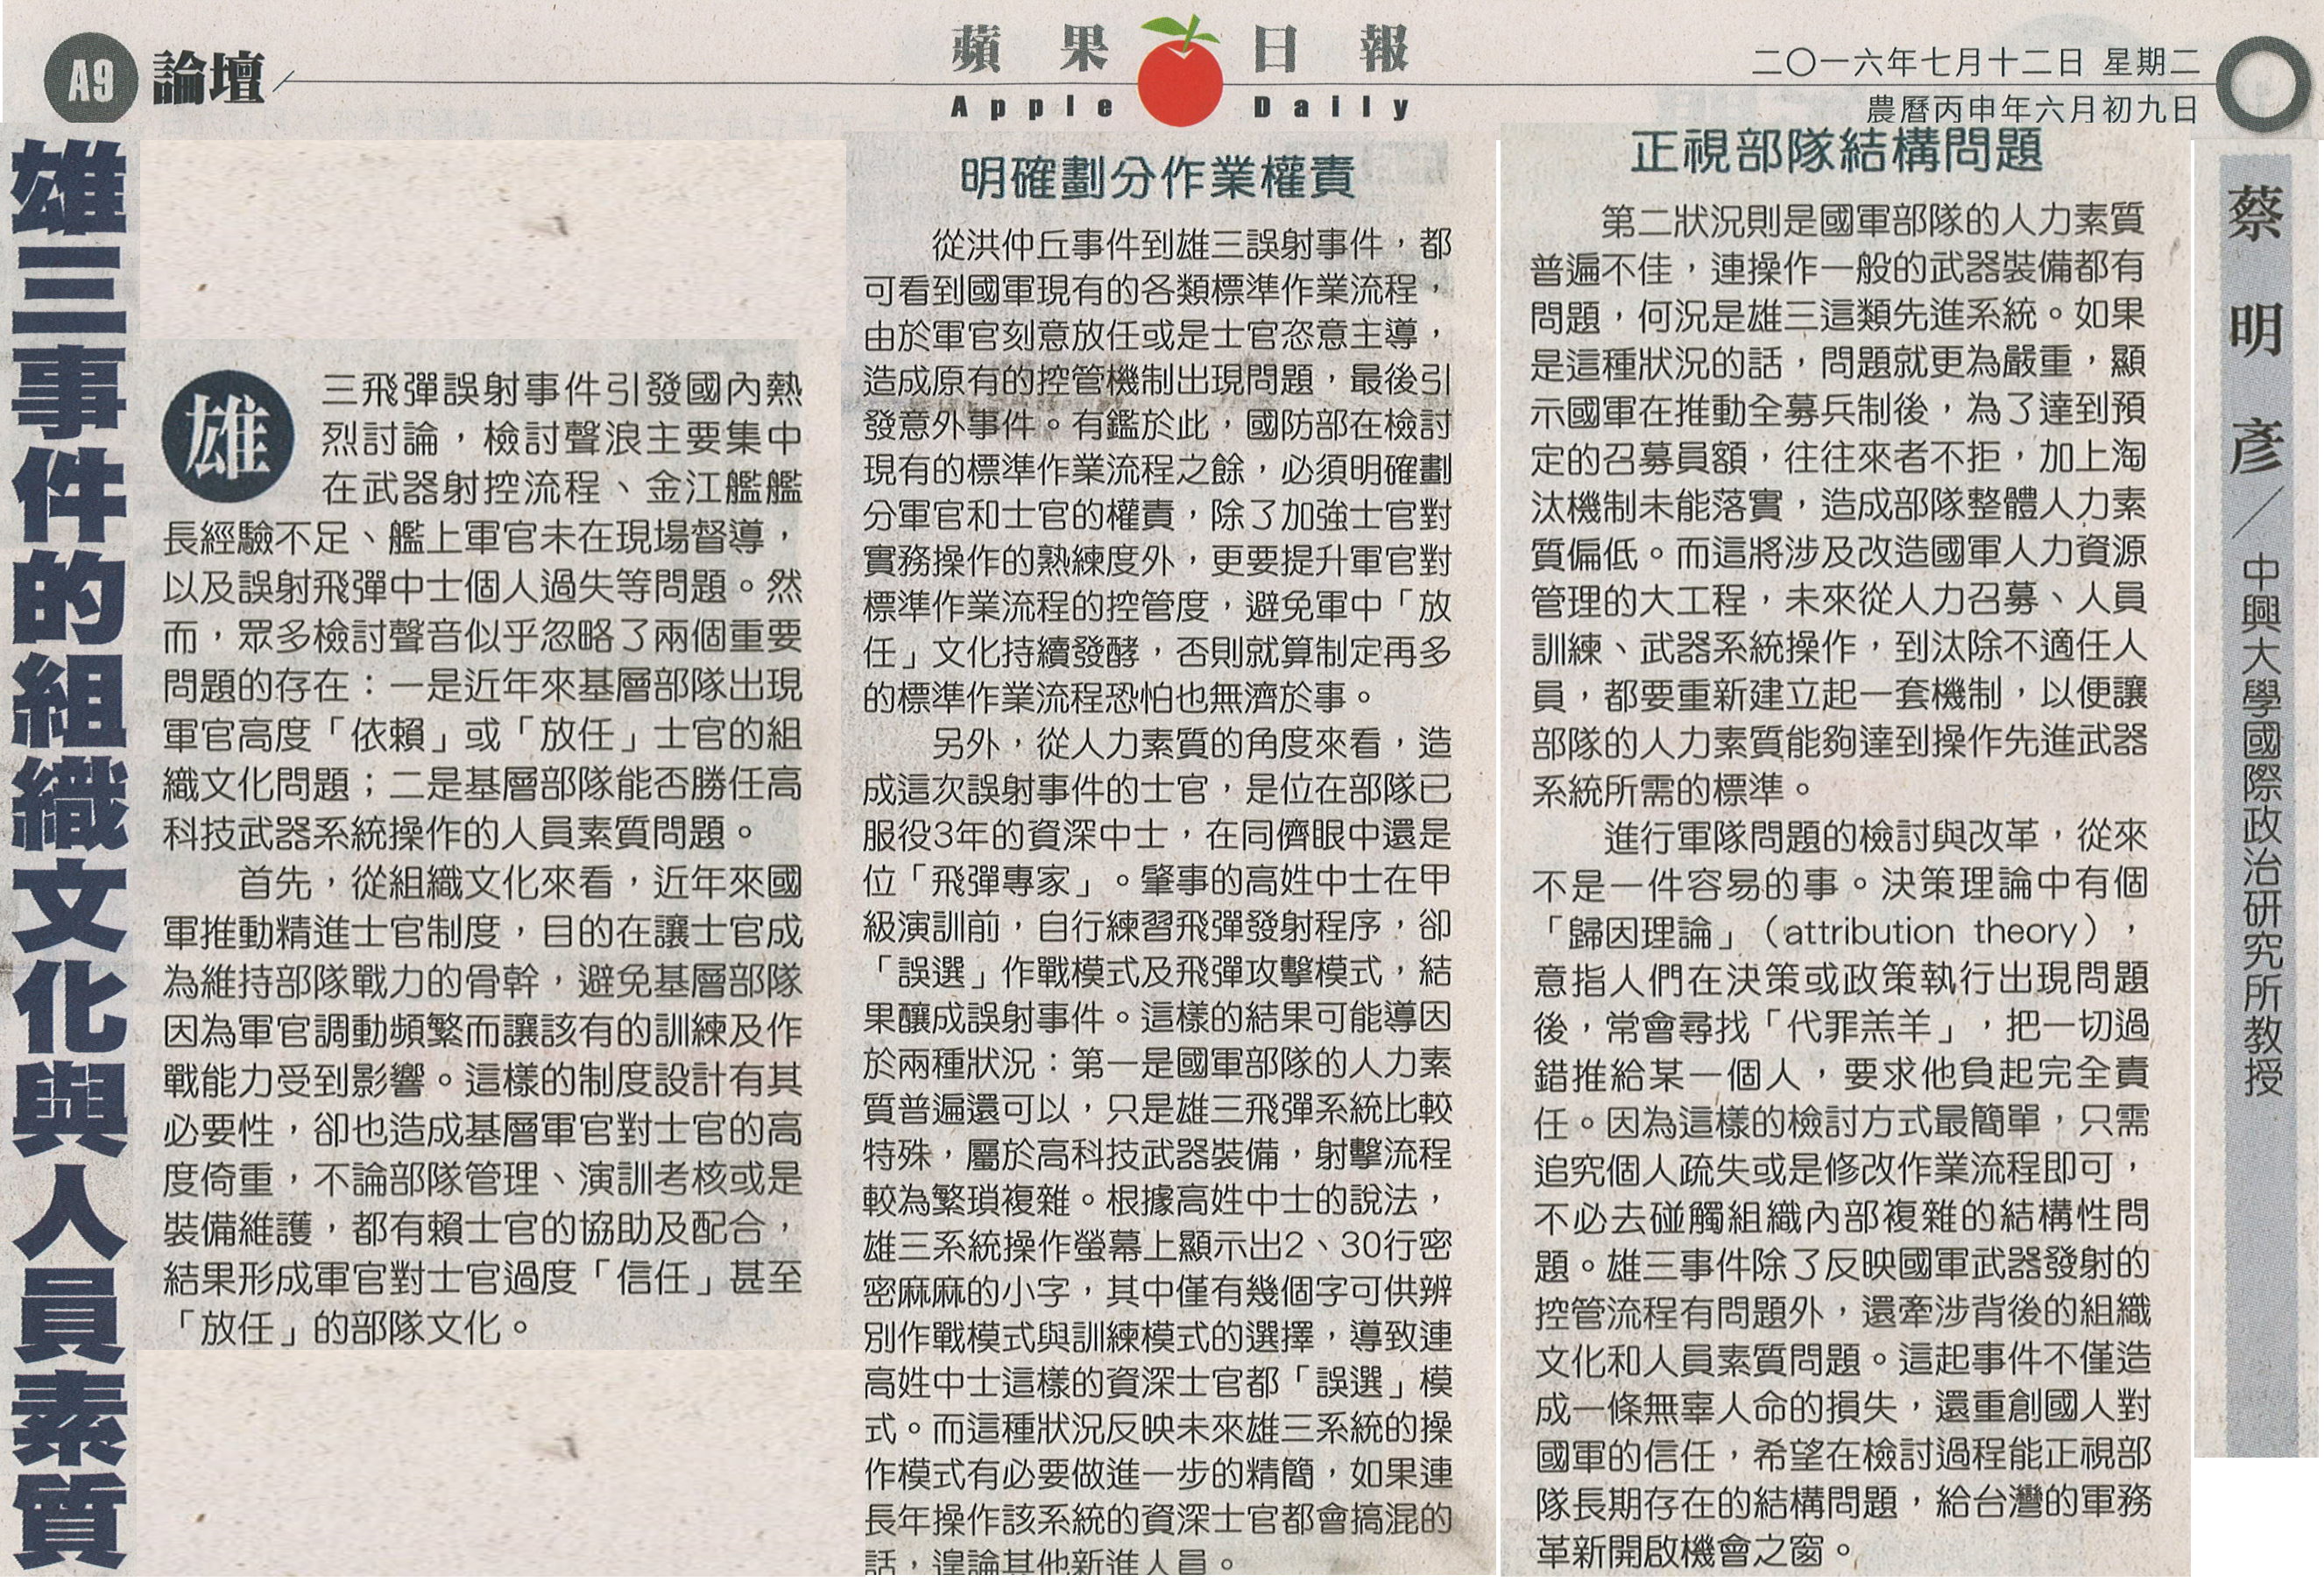 A9 論壇
蘋果日報
Apple Daily
二〇一六年七月十二日 星期二
農曆丙申年六月初九日
雄三事件的組織文化與人員素質
雄三飛彈誤射事件引發國內熱
烈討論，檢討聲浪主要集中
在武器射控流程、金江艦艦
長經驗不足、艦上軍官未在現場督導，
以及誤射飛彈中士個人過失等問題。然
而，眾多檢討聲音似乎忽略了兩個重要
問題的存在：一是近年來基層部隊出現
軍官高度「依賴」或「放任」士官的組
織文化問題；二是基層部隊能否勝任高
科技武器系統操作的人員素質問題。
首先，從組織文化來看，近年來國
軍推動精進士官制度，目的在讓士官成
為維持部隊戰力的骨幹，避免基層部隊
因為軍官調動頻繁而讓該有的訓練及作
戰能力受到影響。這樣的制度設計有其
必要性，卻也造成基層軍官對士官的高
度倚重，不論部隊管理、演訓考核或是
裝備維護，都有賴士官的協助及配合，
結果形成軍官對士官過度「信任」甚至
「放任」的部隊文化。
明確劃分作業權責
從洪仲丘事件到雄三誤射事件，都
可看到國軍現有的各類標準作業流程，
由於軍官刻意放任或是士官恣意主導，
造成原有的控管機制出現問題，最後引
發意外事件。有鑑於此，國防部在檢討
現有的標準作業流程之餘，必須明確劃
分軍官和士官的權責，除了加強士官對
實務操作的熟練度外，更要提升軍官對
標準作業流程的控管度，避免軍中「放
任」文化持續發酵，否則就算制定再多
的標準作業流程恐怕也無濟於事。
另外，從人力素質的角度來看，造
成這次誤射事件的士官，是位在部隊已
服役3年的資深中士，在同儕眼中還是
位「飛彈專家」。肇事的高姓中士在甲
級演訓前，自行練習飛彈發射程序，卻
「誤選」作戰模式及飛彈攻擊模式，結
果釀成誤射事件。這樣的結果可能導因
於兩種狀況：第一是國軍部隊的人力素
質普遍還可以，只是雄三飛彈系統比較
特殊，屬於高科技武器裝備，射擊流程
較為繁瑣複雜。根據高姓中士的說法，
雄三系統操作螢幕上顯示出2、30行密
密麻麻的小字，其中僅有幾個字可供辨
別作戰模式與訓練模式的選擇，導致連
高姓中士這樣的資深士官都「誤選」模
式。而這種狀況反映未來雄三系統的操
作模式有必要做進一步的精簡，如果連
長年操作該系統的資深士官都會搞混的
話，遑論其他新進人員。
正視部隊結構問題
第二狀況則是國軍部隊的人力素質
普遍不佳，連操作一般的武器裝備都有
問題，何況是雄三這類先進系統。如果
是這種狀況的話，問題就更為嚴重，顯
示國軍在推動全募兵制後，為了達到預
定的召募員額，往往來者不拒，加上淘
汰機制未能落實，造成部隊整體人力素
質偏低。而這將涉及改造國軍人力資源
管理的大工程，未來從人力召募、人員
訓練、武器系統操作，到汰除不適任人
員，都要重新建立起一套機制，以便讓
部隊的人力素質能夠達到操作先進武器
系統所需的標準。
進行軍隊問題的檢討與改革，從來
不是一件容易的事。決策理論中有個
「歸因理論」（attribution theory），
意指人們在決策或政策執行出現問題
後，常會尋找「代罪羔羊」，把一切過
錯推給某一個人，要求他負起完全責
任。因為這樣的檢討方式最簡單，只需
追究個人疏失或是修改作業流程即可，
不必去碰觸組織內部複雜的結構性問
題。雄三事件除了反映國軍武器發射的
控管流程有問題外，還牽涉背後的組織
文化和人員素質問題。這起事件不僅造
成一條無辜人命的損失，還重創國人對
國軍的信任，希望在檢討過程能正視部
隊長期存在的結構問題，給台灣的軍務
革新開啟機會之窗。
蔡明彥／中興大學國際政治研究所教授